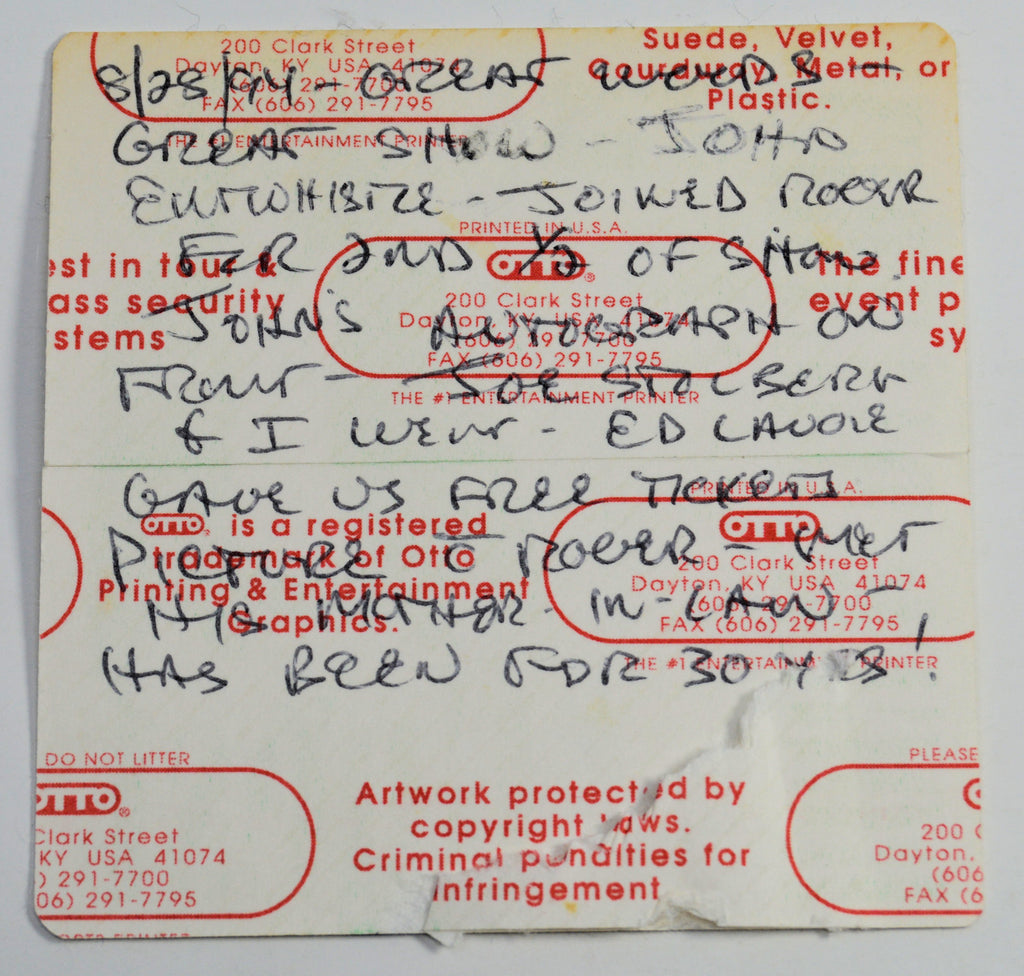 200 Clark Street
Dayton, KY USA 41074
(606) 291-7700
FAX (606) 291-7795
THE #1 ENTERTAINMENT PRINTER
Suede, Velvet,
Courduroy, Metal, or
Plastic.
8/28/94 - GREAT WOODS -
GREAT SHOW - JOHN
ENTWHISTLE - JOINED ROGER
FER 2ND 1/2 OF SHOW.
JOHN'S AUTOGRAPH ON
FRONT - JOE STOLBERG
& I WENT - ED LAVOIE
GAVE US FREE TICKETS
PICTURE C ROGER - MET
HIS MOTHER-IN-LAW -
HAS BEEN FOR 30 YRS!
est in tour &
ass security
stems
PRINTED IN U.S.A.
OTTO®
200 Clark Street
Dayton, KY USA 41074
(606) 291-7700
FAX (606) 291-7795
THE #1 ENTERTAINMENT PRINTER
The fine
event p
sy
OTTO® is a registered
trademark of Otto
Printing & Entertainment
Graphics.
PRINTED IN U.S.A.
OTTO
200 Clark Street
Dayton, KY USA 41074
(606) 291-7700
FAX (606) 291-7795
THE #1 ENTERTAINMENT PRINTER
DO NOT LITTER
OTTO®
Clark Street
KY USA 41074
) 291-7700
06) 291-7795
Artwork protected by
copyright laws.
Criminal penalties for
infringement
PLEASE
200 C
Dayton,
(606
FAX (6